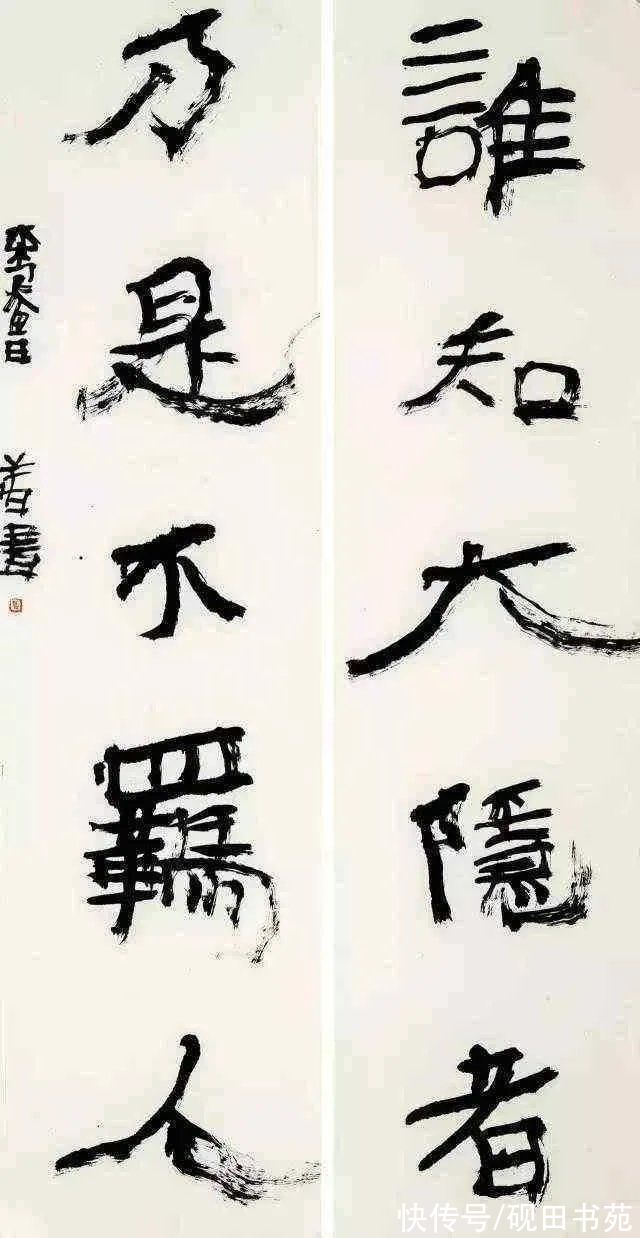 誰知大隱者
乃是不羈人
善書
快传号/砚田书苑